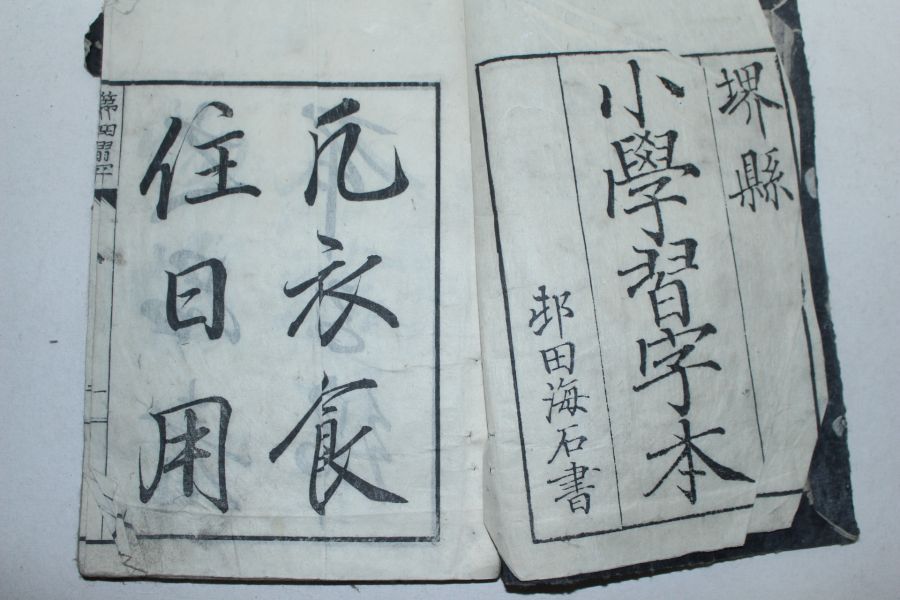 堺縣
小學習字本
邨田海石書
凡衣食
住日用
第四習字
一